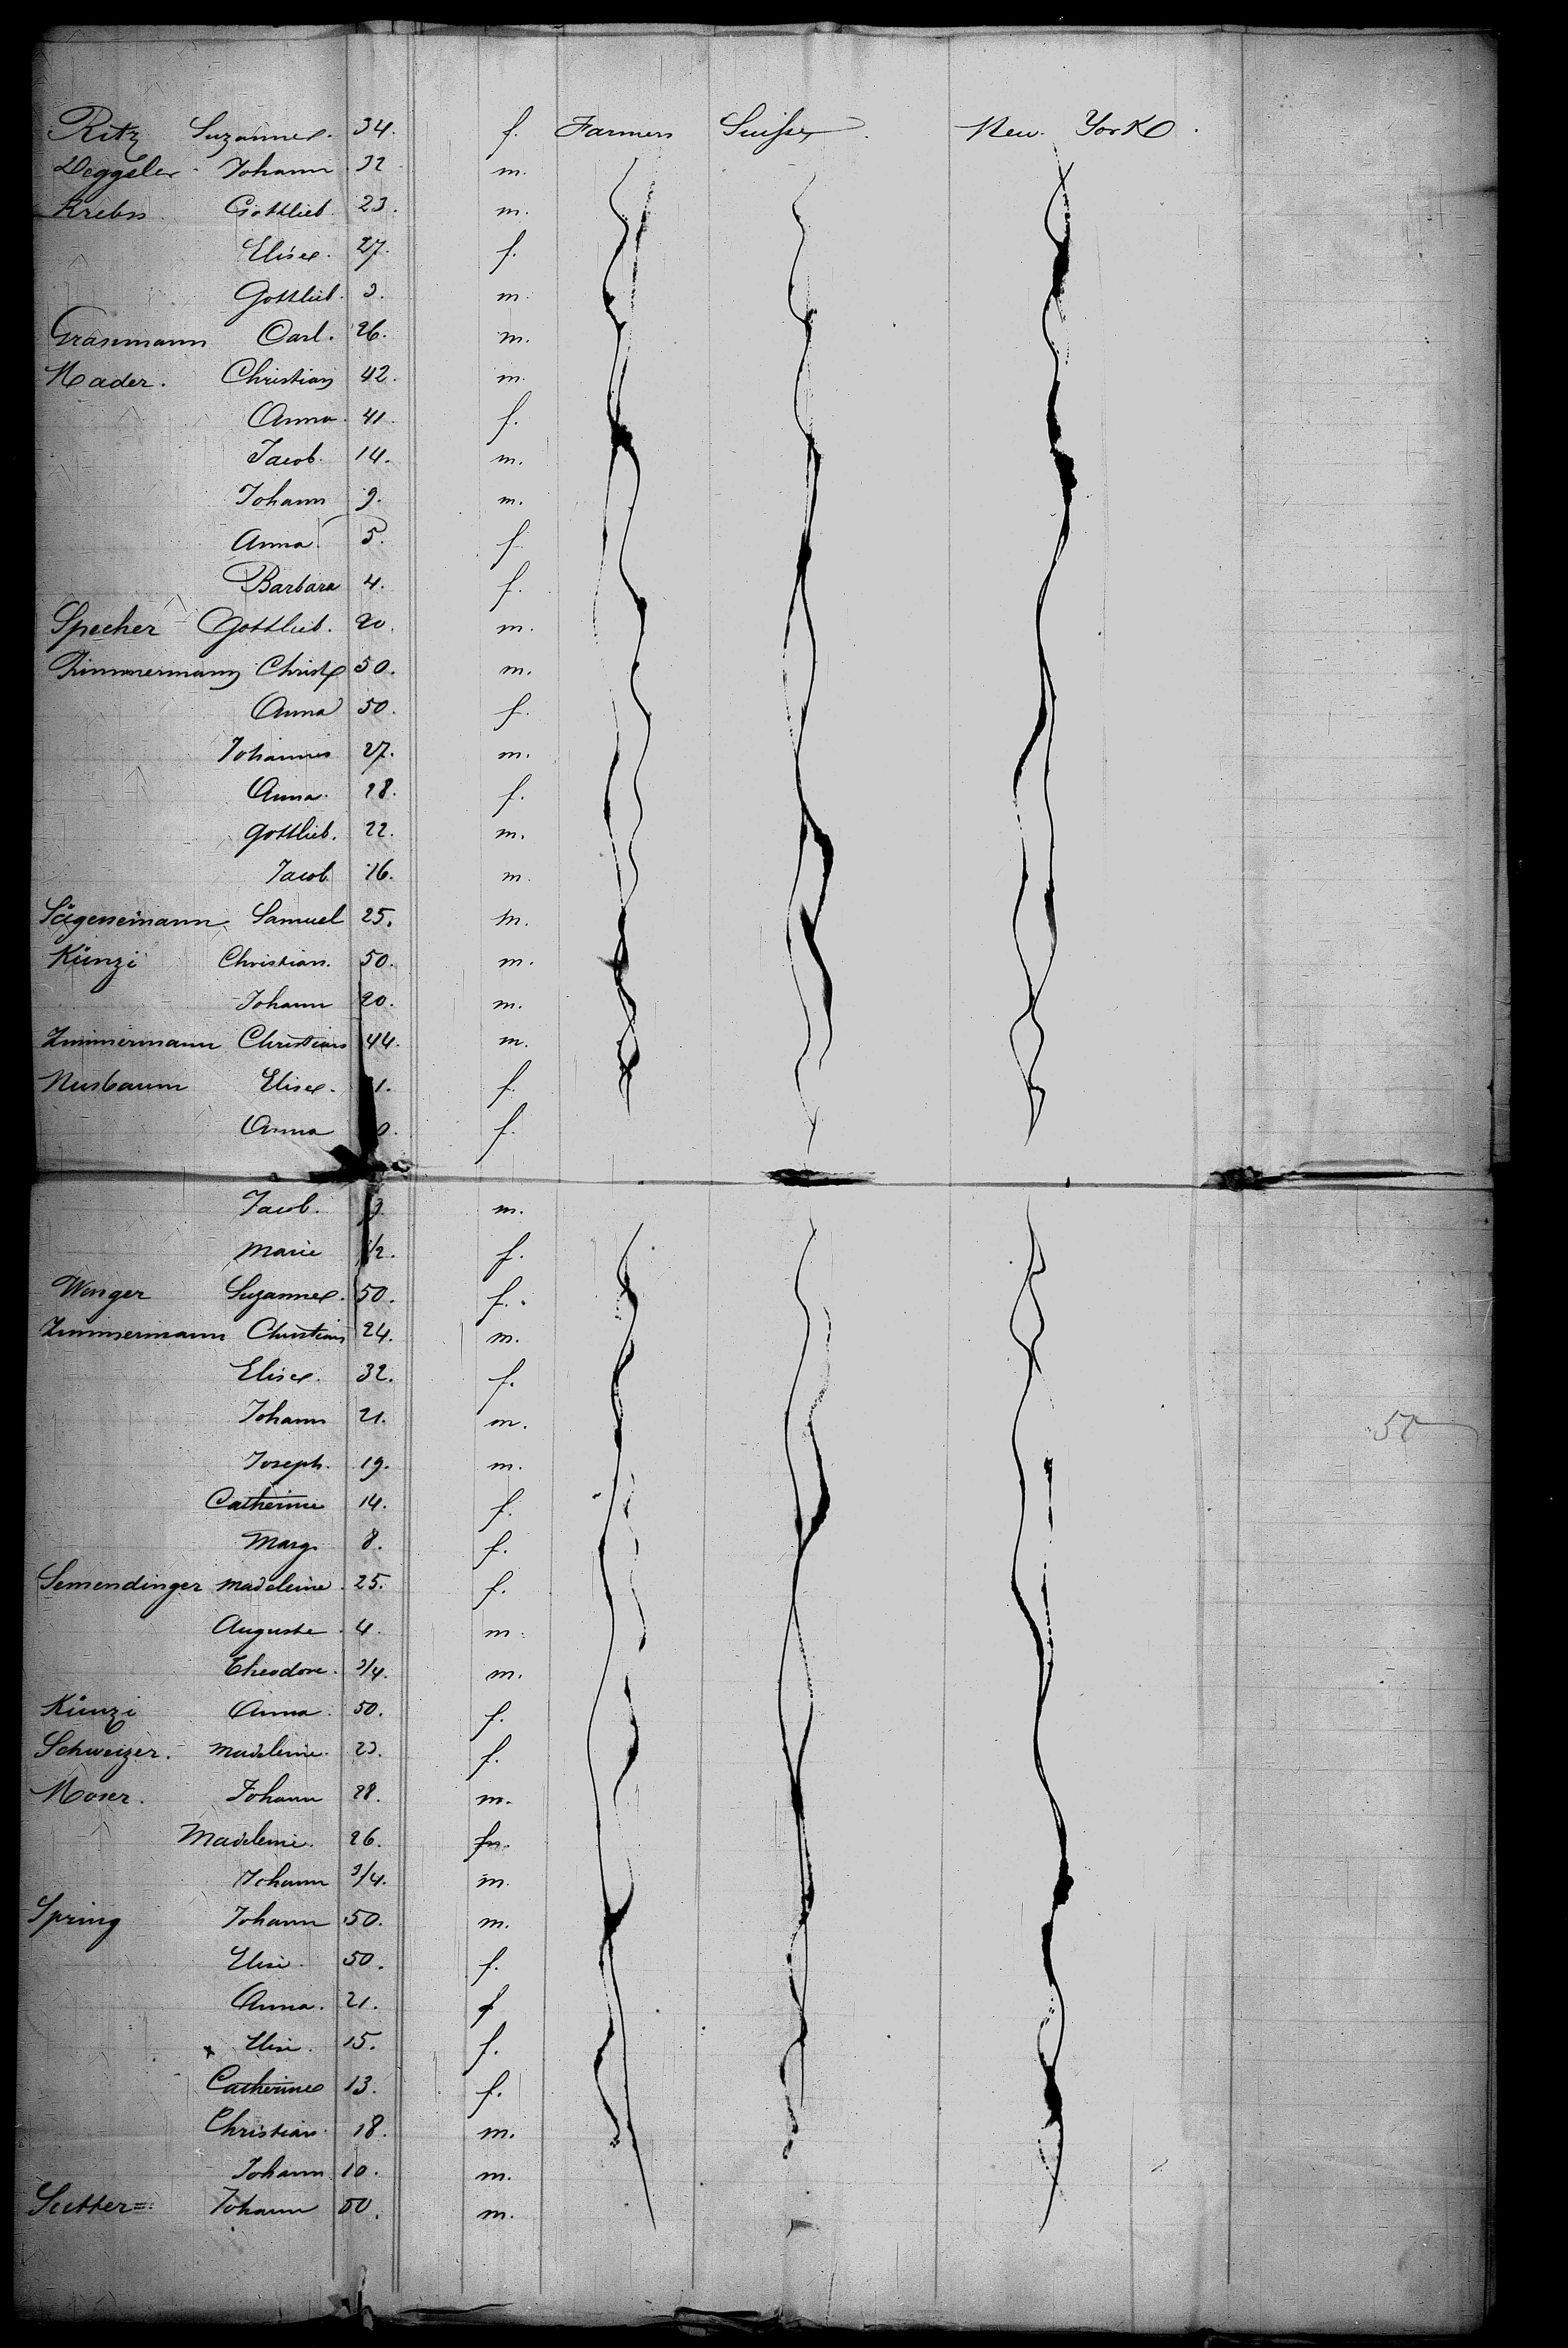 Ritz Suzanne. 34. f. Farmers Suisse New York.
Deggeler Johann 32 m.
Krebs Gottlieb 23. m.
Elise. 27. f.
Gottlieb. 3. m.
Grasmann Carl. 26. m.
Mader. Christian 42. m.
Anna. 41. f.
Jacob. 14. m.
Johann 9. m.
Anna. 5. f.
Barbara 4. f.
Specher Gottlieb. 20. m.
Zimmermann Christ 50. m.
Anna 50. f.
Johannes 27. m.
Anna. 28. f.
Gottlieb. 22. m.
Jacob 16. m.
Samuel 25. m.
Künzi Christian. 50. m.
Johann 20. m.
Zimmermann Christian 44. m.
Nusbaum Elise. f.
Anna f.
Jacob. m.
Marie 1/2. f.
Wenger Suzanne. 50. f.
Zimmermann Christian 24. m.
Elise. 32. f.
Johann 21. m.
Joseph. 19. m.
Catherine 14. f.
Marg. 8. f.
Semendinger Madeleine. 25. f.
Auguste. 4. m.
Theodore. 3/4. m.
Künzi Anna. 50. f.
Schweizer. Madeleine. 23. f.
Moser. Johann 28. m.
Madeleine. 26.
Johann 3/4. m.
Spring Johann 50. m.
Elise. 50. f.
Anna. 21. f
x Elise. 15. f.
Catherine 13. f.
Christian. 18. m.
Johann 10. m.
Sutter = Johann 50. m.